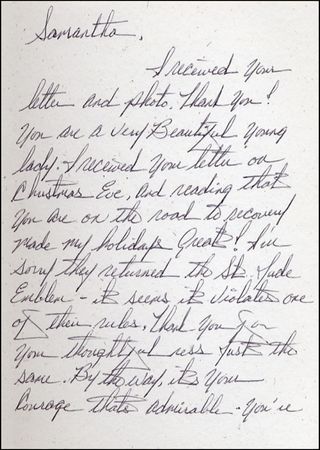 Samantha,
I received your
letter and photo. Thank You!
You are a very Beautiful young
lady. I received your letter on
Christmas Eve, and reading that
you are on the road to recovery
made my holidays Great! I'm
sorry they returned the St. Jude
Emblem - it seems it violates one
of their rules. Thank You for
your thoughtful ness just the
same. By the way, it's your
Courage that's admirable - You're